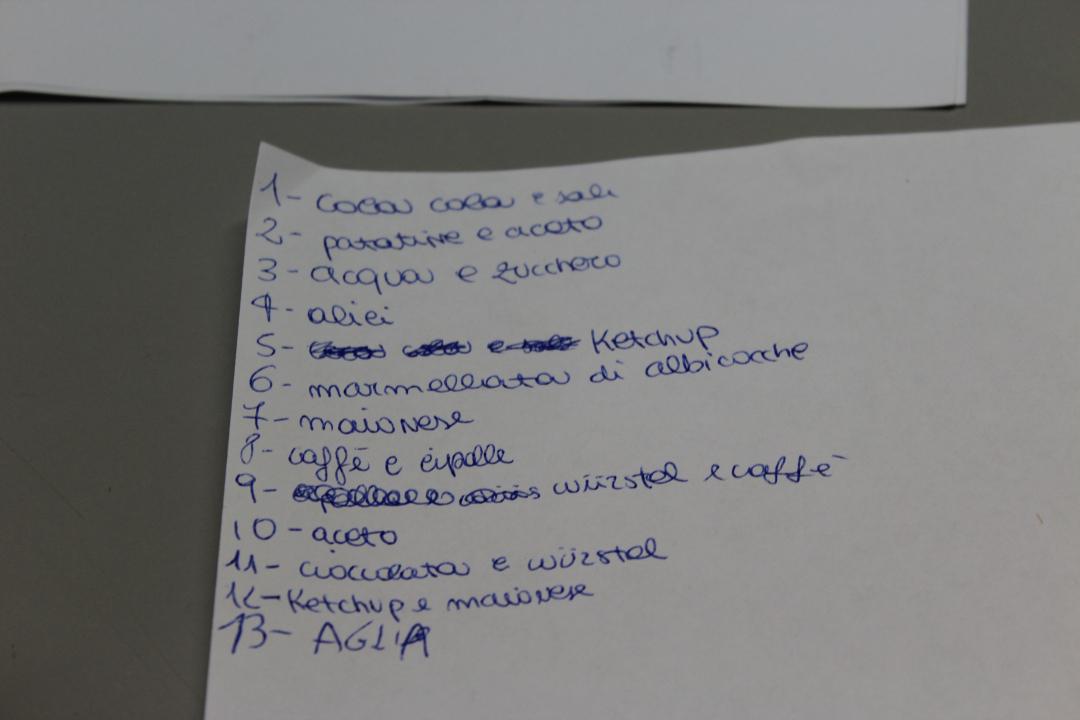 1- coca cola e sale
2- patatine e aceto
3- acqua e zucchero
4- alici
5- Ketchup
6- marmellata di albicocche
7- maionese
8- caffè e cipolle
9- würstel e caffè
10- aceto
11- cioccolata e würstel
12- Ketchup e maionese
13- AGLIA